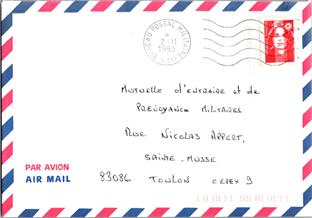 BUREAU POSTAL MILITAIRE
2-11
1993
Mutuelle d'entraide et de
PREVOYANCE MILITAIRES
Rue Nicolas APPERT,
SAINTE-MUSSE
83086 TOULON CEDEX 9
PAR AVION
AIR MAIL